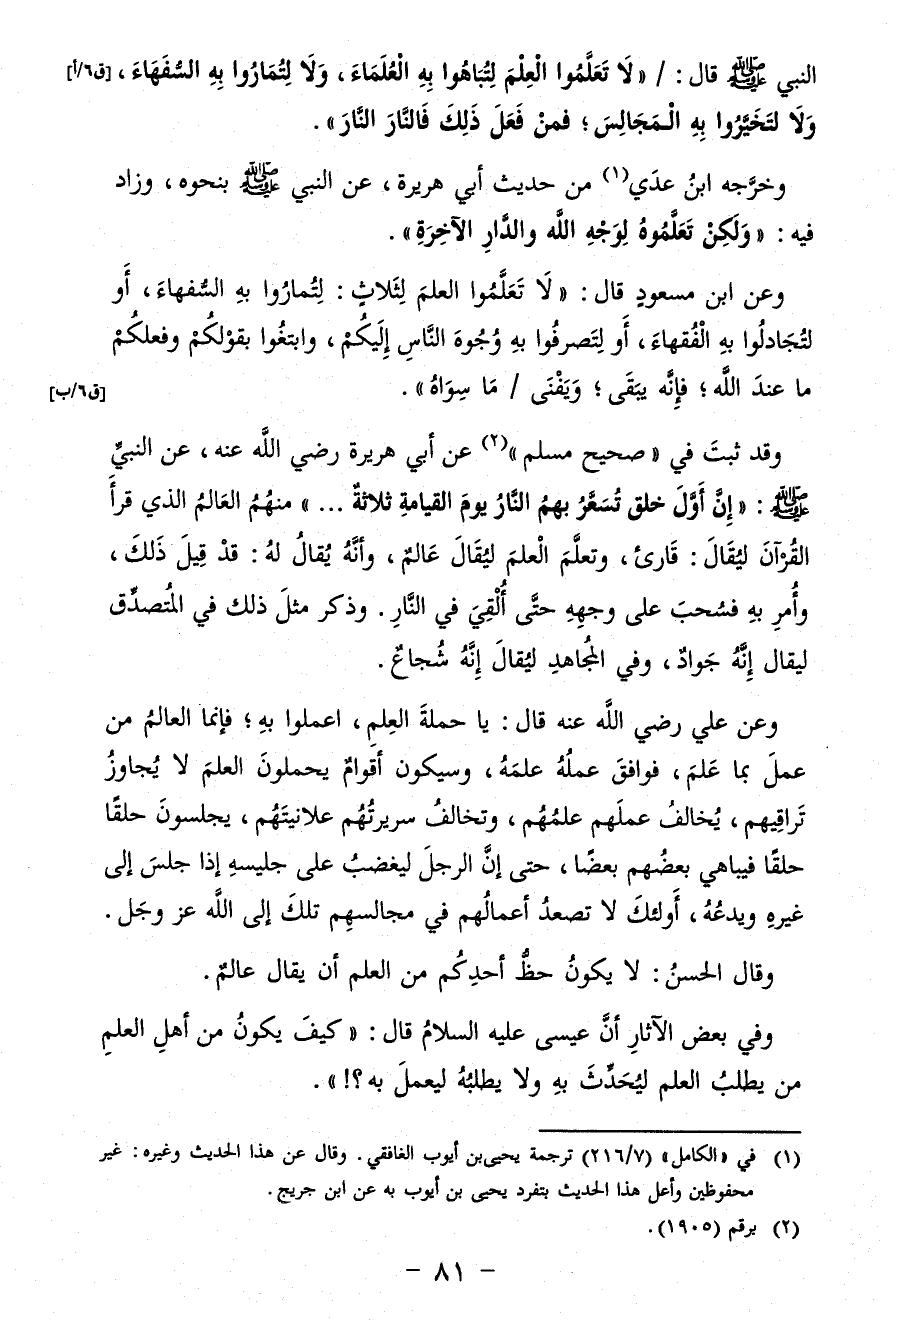 النبي ﷺ قال : / « لَا تَعَلَّمُوا الْعِلْمَ لِتُبَاهُوا بِهِ الْعُلَمَاءَ ، وَلَا لِتُمَارُوا بِهِ السُّفَهَاءَ ، [ق٦/أ]
وَلَا لتَخَيَّرُوا بِهِ الْـمَجَالِسَ ؛ فمنْ فَعَلَ ذَلِكَ فَالنَّارَ النَّارَ » .
وخرَّجه ابنُ عدَي(١) من حديث أبي هريرة ، عن النبي ﷺ بنحوه ، وزاد
فيه : « وَلَكِنْ تَعَلَّمُوهُ لِوَجْهِ اللَّه والدَّارِ الآخِرَةِ » .
وعن ابن مسعودٍ قال : « لَا تَعَلَّمُوا العلمَ لِثَلاثٍ : لِتُمارُوا بِهِ السُّفهاءَ ، أَو
لتُجَادلُوا بِهِ الْفُقهاءَ ، أَو لِتَصرفُوا بِهِ وُجُوهَ النَّاسِ إِلَيكُمْ ، وابتغُوا بقوْلكُمْ وفعلكُمْ
ما عندَ اللَّه ؛ فإِنَّه يبَقَى ؛ وَيَفْنَى / مَا سِوَاهُ » . [ق٦/ب]
وقد ثبتَ في « صحيح مسلم »(٢) عن أبي هريرة رضي اللَّه عنه ، عن النبيِّ
ﷺ : « إِنَّ أَوَّلَ خلق تُسَعَّرُ بهمُ النَّارُ يومَ القيامةِ ثلاثةٌ ... » منهُمُ العَالمُ الذي قرأَ
القُرْآنَ ليُقَالَ : قَارئ ، وتعلَّمَ الْعلمَ ليُقَالَ عَالمٌ ، وأنَّهُ يُقالُ لهُ : قدْ قِيلَ ذَلكَ ،
وأُمرِ بهِ فسُحبَ على وجهِهِ حتَّى أُلْقِيَ في النَّارِ . وذكر مثلَ ذلك في المُتصدِّق
ليقال إِنَّهُ جَوادٌ ، وفي المُجاهدِ ليُقالَ إِنَّهُ شُجاعٌ .
وعن علي رضي اللَّه عنه قال : يا حملةَ العِلمِ ، اعملوا بهِ ؛ فإنما العالمُ من
عملَ بما عَلمَ ، فوافقَ عملُهُ علمَهُ ، وسيكون أقوامٌ يحملونَ العلمَ لا يُجاوزُ
تَراقِيهم ، يُخالفُ عملَهم علمُهُم ، وتخالفُ سريرتُهُم علانيتَهُم ، يجلسونَ حلقًا
حلقًا فيباهي بعضُهم بعضًا ، حتى إنَّ الرجلَ ليغضبُ على جليسهِ إذا جلسَ إلى
غيرهِ ويدعُهُ ، أَولئكَ لا تصعدُ أعمالُهم في مجالسهِم تلكَ إلى اللَّه عز وجَل .
وقال الحسنُ : لا يكونُ حظُّ أحدِكُم من العلم أن يقال عالمٌ .
وفي بعض الآثارِ أنَّ عيسى عليه السلامُ قال : « كيفَ يكونُ من أهلِ العلمِ
من يطلبُ العلم ليُحَدِّثَ بهِ ولا يطلبُهُ ليعملَ به ؟! » .
(١) في «الكامل» (٢١٦/٧) ترجمة يحيى بن أيوب الغافقي . وقال عن هذا الحديث وغيره : غير
محفوظين وأعل هذا الحديث بتفرد يحيى بن أيوب به عن ابن جريج .
(٢) برقم (١٩٠٥) .
- ٨١ -